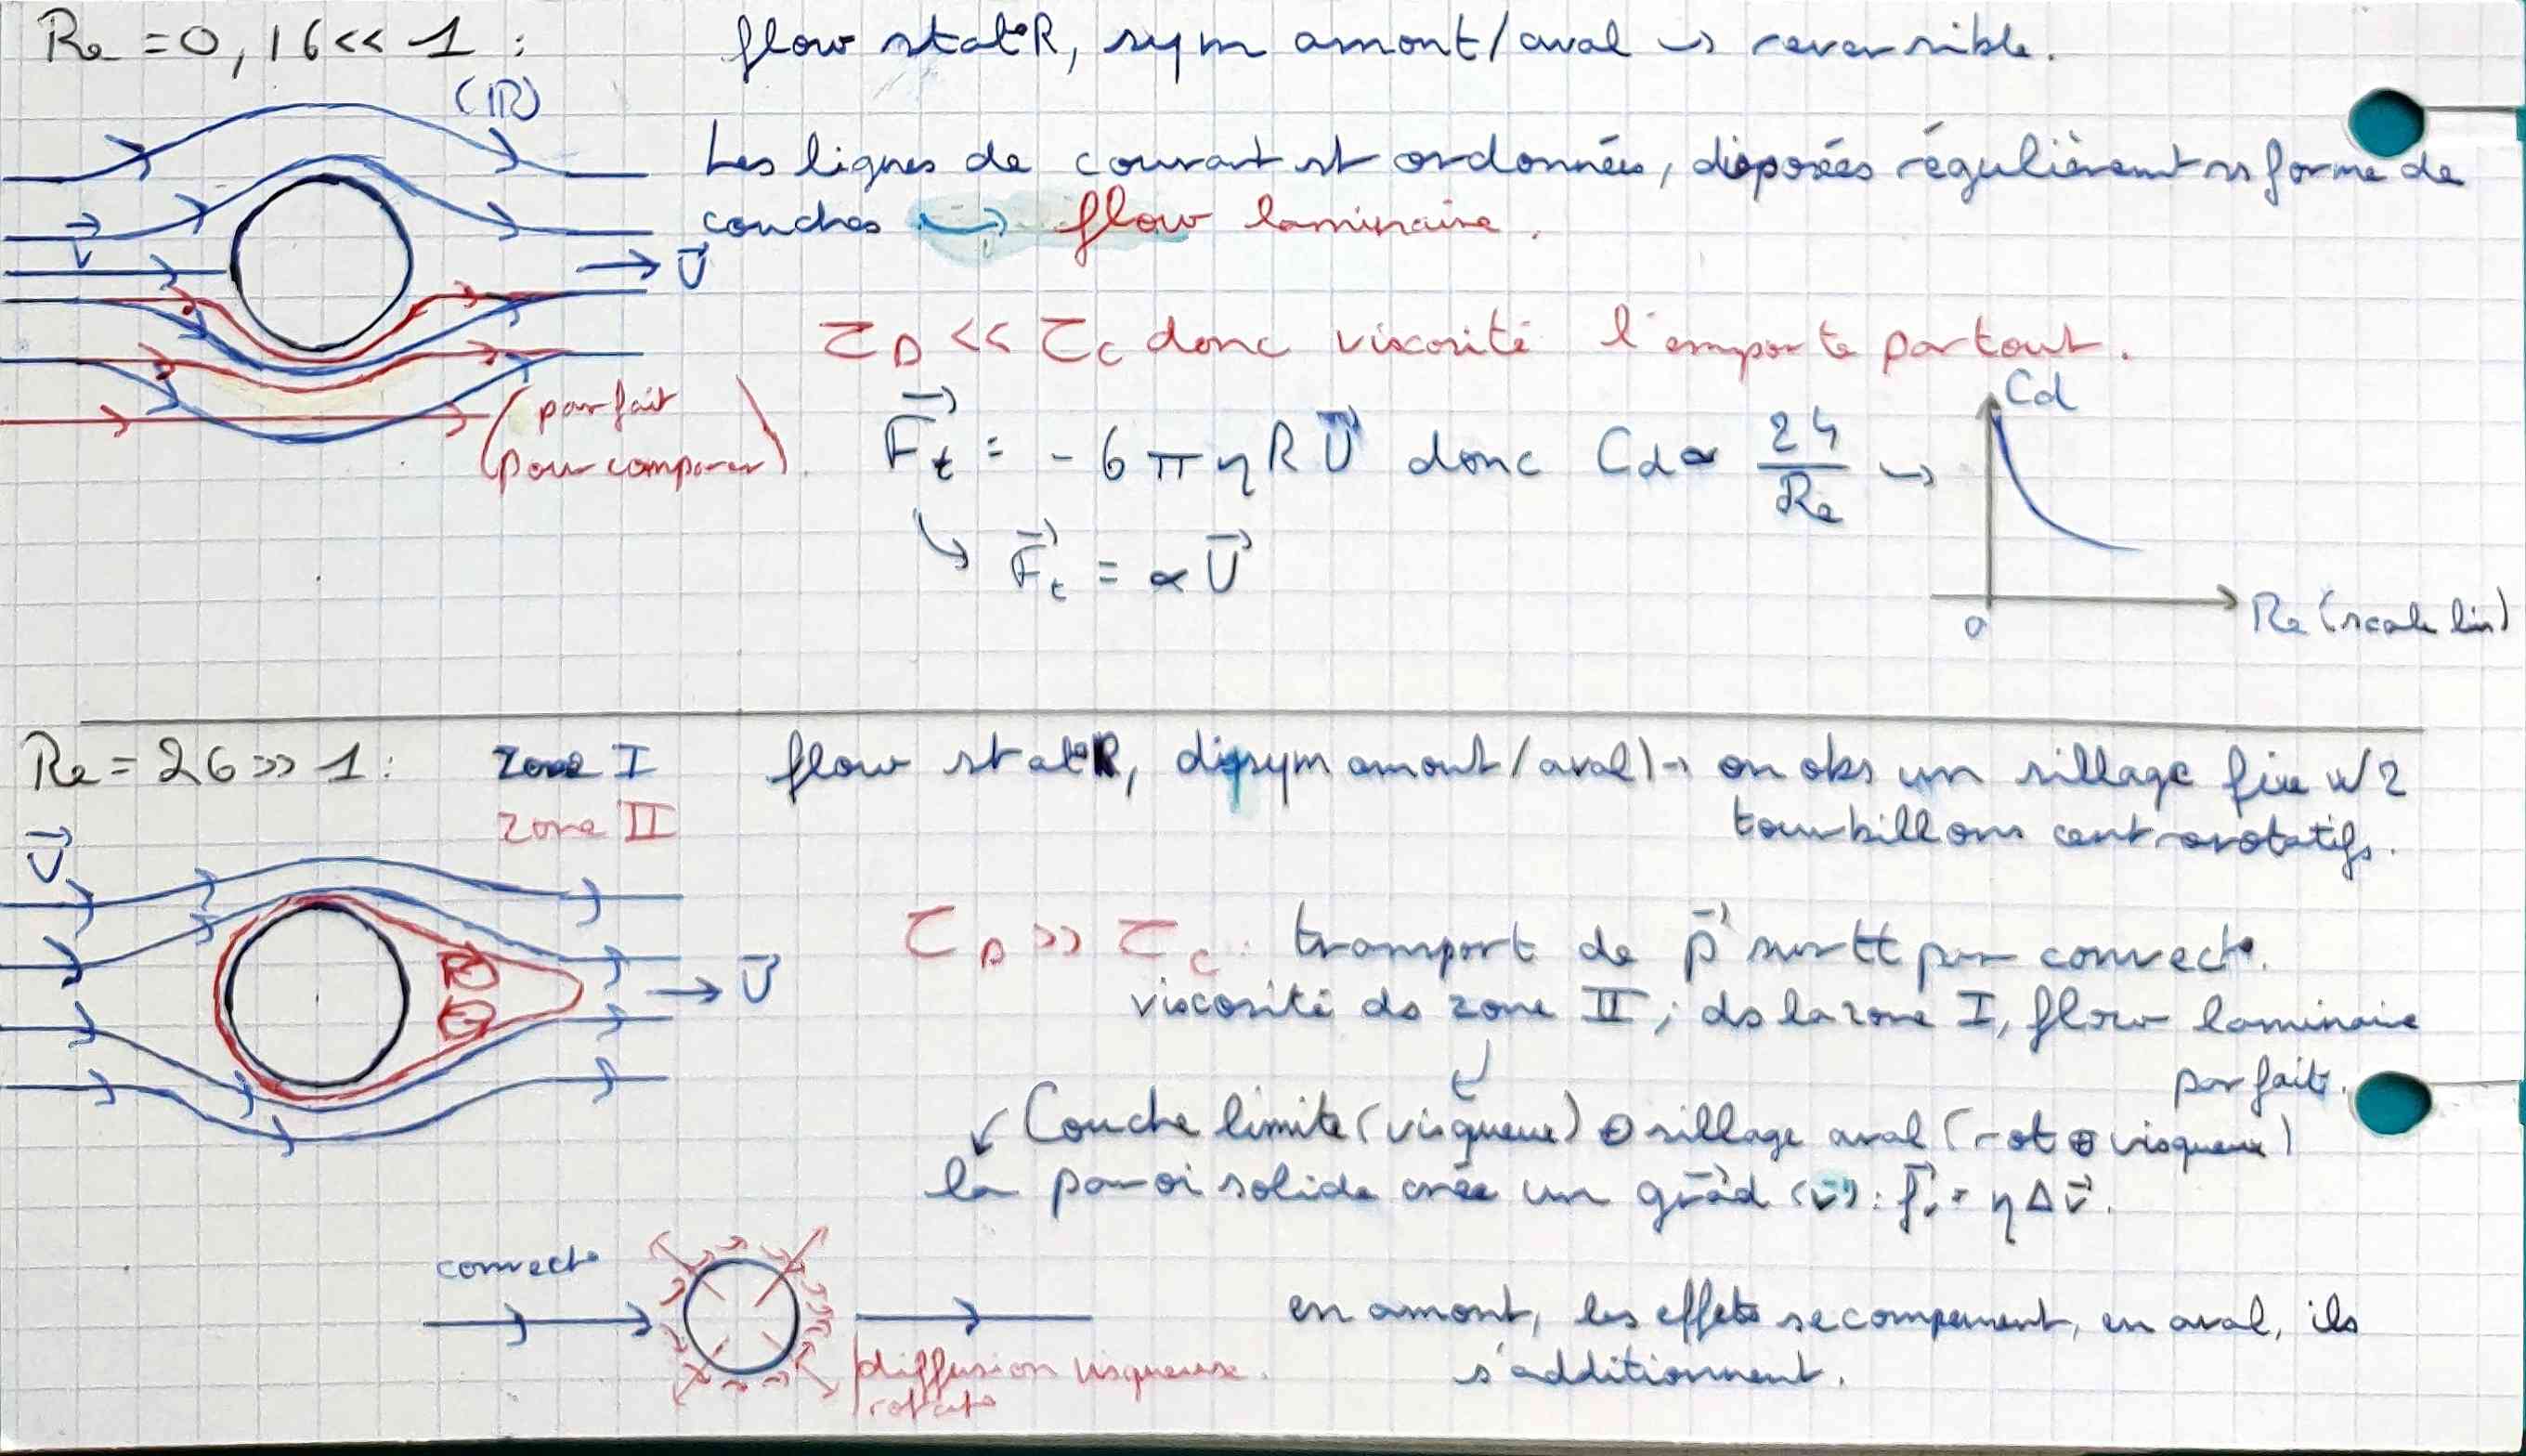 Re = 0,16 << 1 : flow stat°R, sym amont/aval → reversible.
(IR)
Les lignes de courant st ordonnées, disposées régulièrement ss forme de
couches → flow laminaire.
v⃗
U⃗
τD << τC donc viscosité l'emporte partout.
(parfait
pour comparer).
F⃗t = - 6 π η R U⃗ donc Cd ∝ 24/Re →
Cd
F⃗t = α U⃗
0
Re (scale lin)
Re = 26 >> 1 : zone I flow stat°R, dissym amont/aval → on obs un sillage fixe w/ 2
zone II tourbillons contrarotatifs.
U⃗
τD >> τC : transport de p⃗ surtt par convect°.
U⃗
viscosité ds zone II ; ds la zone I, flow laminaire
parfait.
Couche limite (visqueux) ⊕ sillage aval (rot ⊕ visqueux)
la paroi solide crée un grad⃗ (v⃗) : f⃗v = η Δ v⃗.
convect°
en amont, les effets se compensent, en aval, ils
diffusion visqueuse. s'additionnent.